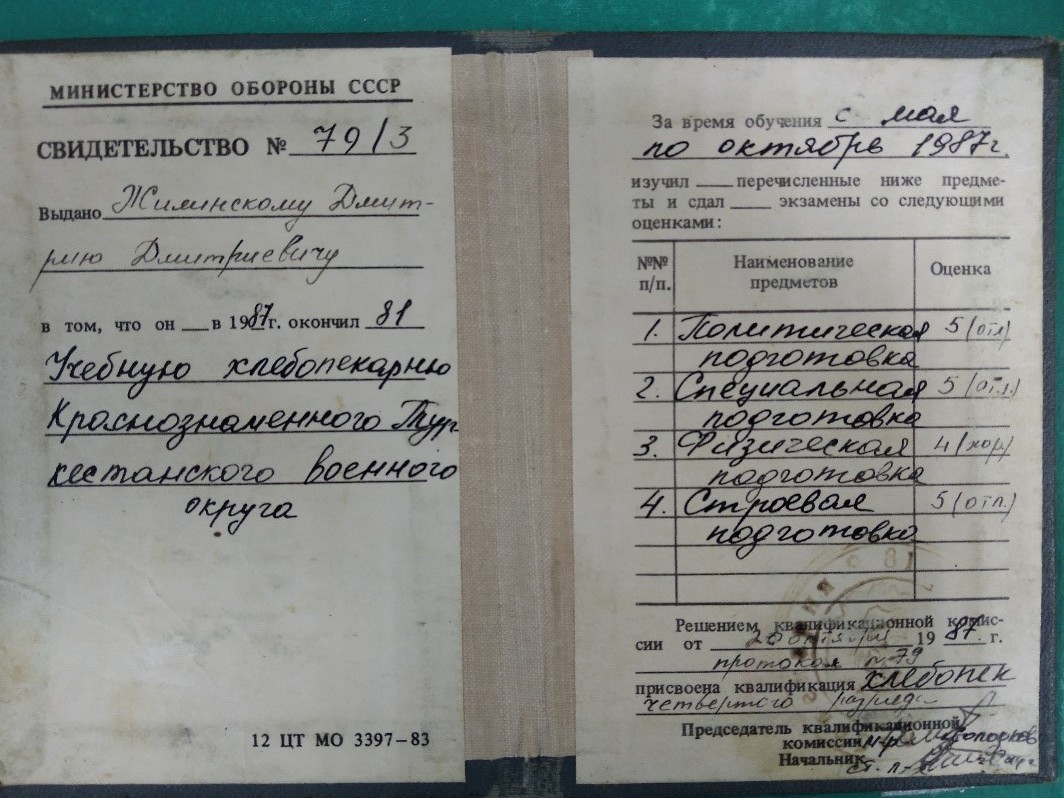 МИНИСТЕРСТВО ОБОРОНЫ СССР
СВИДЕТЕЛЬСТВО № 79/3
Выдано Жилинскому Дмит-
рию Дмитриевичу
в том, что он в 1987г. окончил 81
Учебную хлебопекарню
Краснознаменного Тур
кестанского военного
округа
12 ЦТ МО 3397–83
За время обучения с мая
по октябрь 1987г.
изучил перечисленные ниже предме-
ты и сдал экзамены со следующими
оценками:
№№ п/п. Наименование предметов Оценка
1. Политическая 5 (отл)
подготовка
2. Специальная 5 (отл.)
подготовка
3. Физическая 4 (хор)
подготовка
4. Строевая 5 (отл.)
подготовка
81
Решением квалификационной комис-
сии от октября 1987 г.
протокол №79
присвоена квалификация хлебопек
четвертого разряда
Председатель квалификационной
комиссии м-р
Начальник ст. л-т